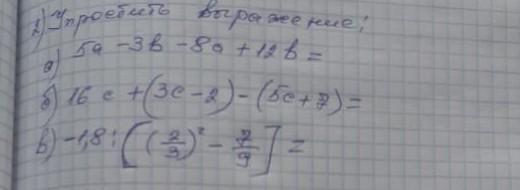 2) Упростить выражение:
а) 5a - 3b - 8a + 12b =
б) 16c + (3c - 2) - (5c + 7) =
в) -1,8 : [(2/3)² - 7/9] =